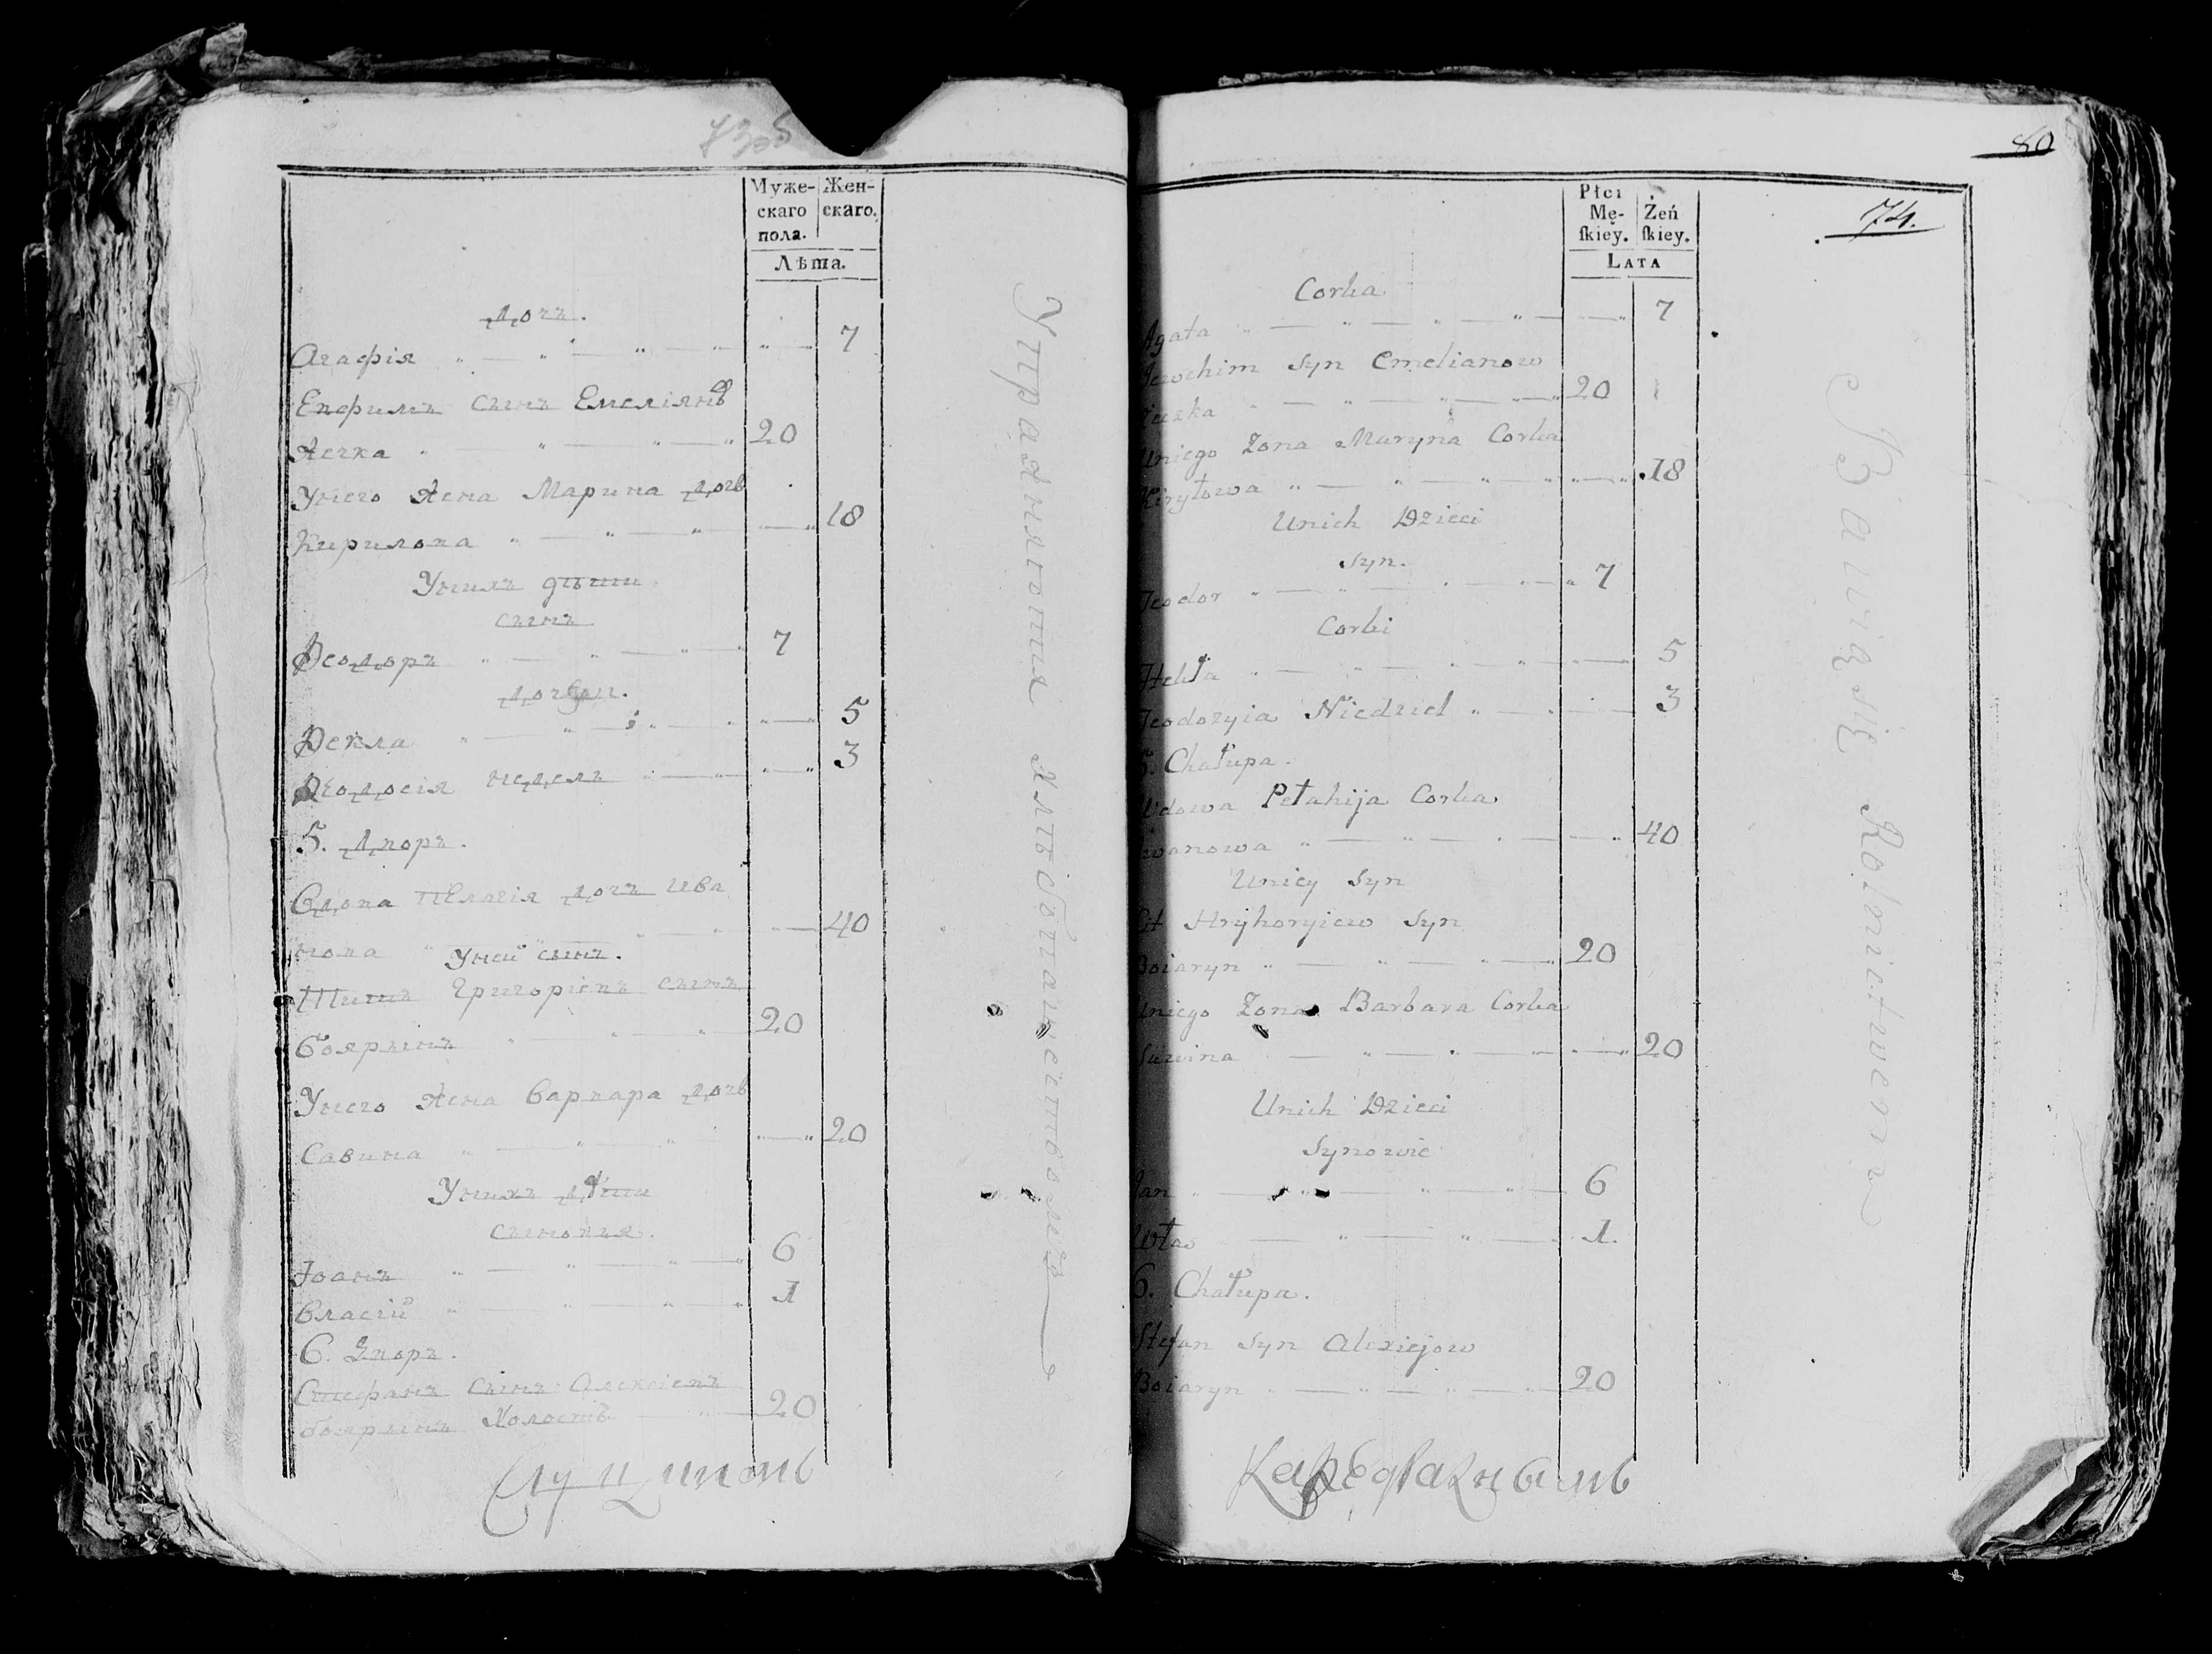 73об
Муже-
скаго
пола.
Жен-
скаго.
Лѣта.
Дочъ.
Агафія 7
Евфимъ сынъ Емеліянов
Жечка 20
Унего Жена Марина Дочь
Кирилова 18
Унихъ дѣти
сынъ
Ѳеодоръ 7
Дочери.
Ѳекла 5
Ѳеодосія недель 3
5. Дворъ.
Вдова Пелагія Дочъ Ива
нова 40
Уней сынъ.
Титъ Григоріевъ сынъ
бояринъ 20
Унего Жена Варвара Дочь
Савина 20
Унихъ Дѣти
сыновья.
Іоанъ 6
Власій 1
6. Дворъ.
Стефанъ сынъ Алексіевъ
бояринъ Холостъ 20
Упражняются хлѣбопашеством
80
74.
Płci
Mę-
ſkiey.
Żeń
ſkiey.
LATA
Corka
Agata 7
Jewchim Syn Emelianow
20
Uniego Zona Maryna Corka
Kiryłowa 18
Unich Dzieci
Syn.
Teodor 7
Corki
5
Teodozyia Niedziel 3
5. Chałupa.
Wdowa Pełahija Corka
Iwanowa 40
Uniey Syn
Tit Hryhoryiew Syn
Boiaryn 20
Uniego Zona Barbara Corka
Sawina 20
Unich Dzieci
Synowie
Jan 6
Włas 1.
6. Chałupa.
Stefan Syn Alexiejow
Boiaryn 20
Bawią się Rolnictwem